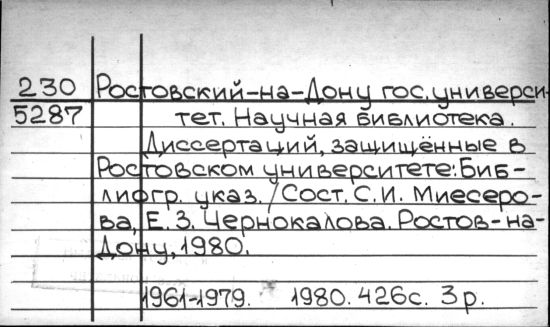 230 Ростовский-на-Дону гос. универси-
5287 тет. Научная библиотека.
Диссертаций, защищённые в
Ростовском университете: Биб-
лиогр. указ. / Сост. С.И. Миесеро-
ва, Е. З. Чернокалова. Ростов-на-
Дону, 1980.
1961-1979. 1980. 426с. 3р.